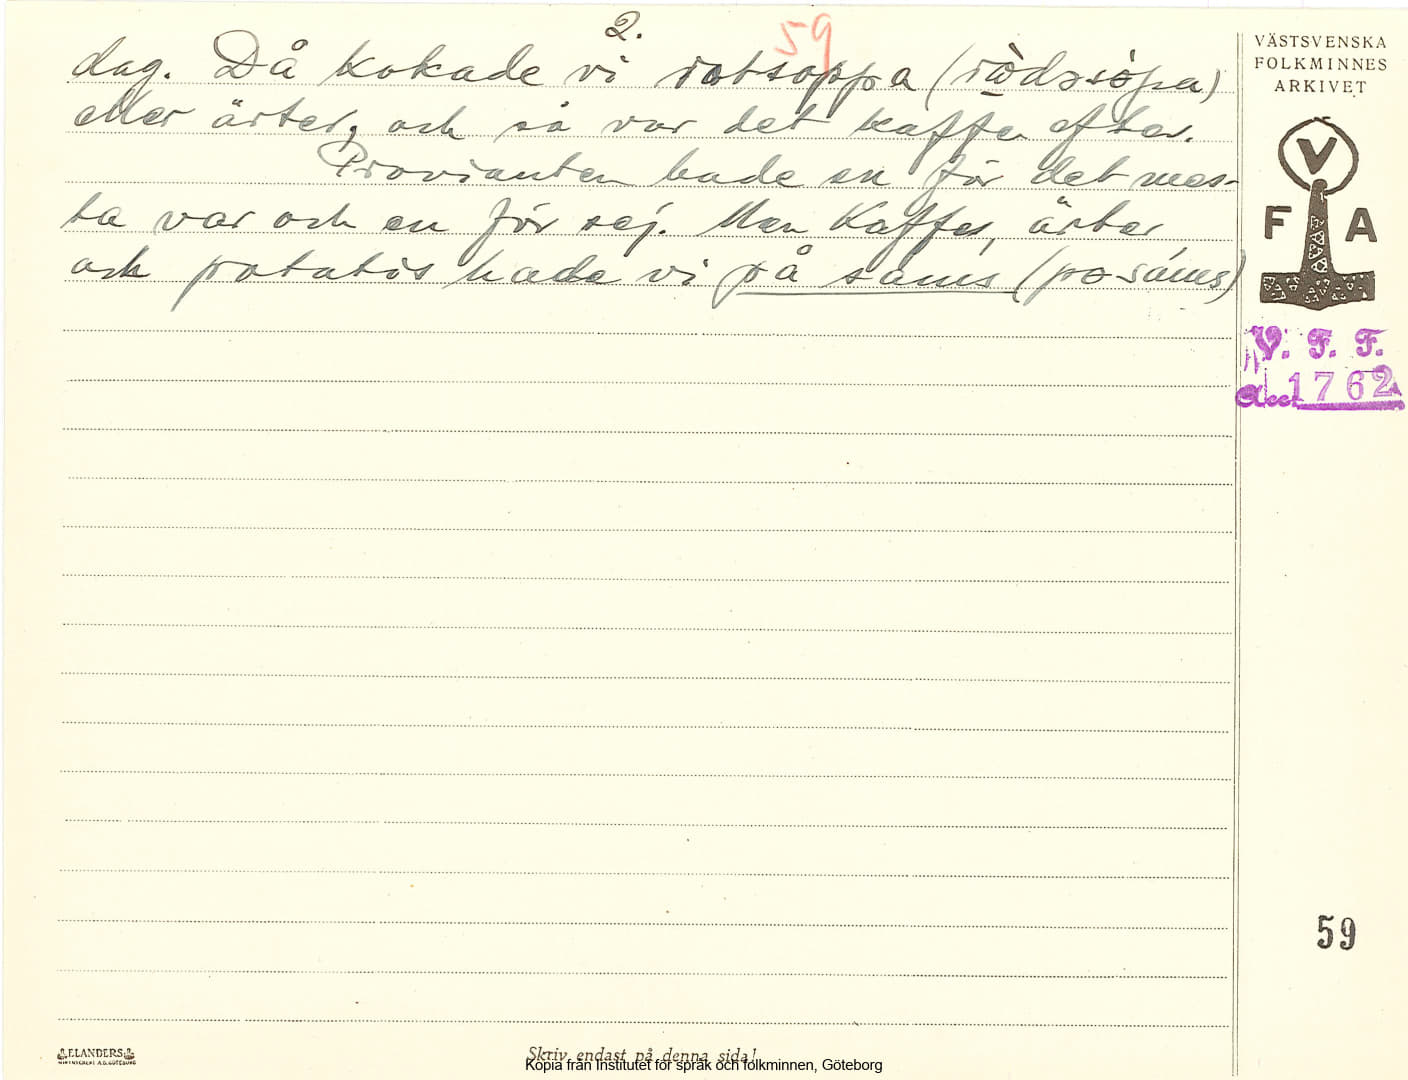 2.
59
dag. Då kokade vi rotsoppa (ròdəsópa)
eller ärter, och så var det kaffe efter.
Provianten hade en för det mes-
ta var och en för sej. Men kaffe, ärter
och potatis hade vi på sams (po sáms)
VÄSTSVENSKA
FOLKMINNES
ARKIVET
V
F A
V. F. F.
Acc. 1762
59
ELANDERS
Skriv endast på denna sida!
Kopia från Institutet för språk och folkminnen, Göteborg